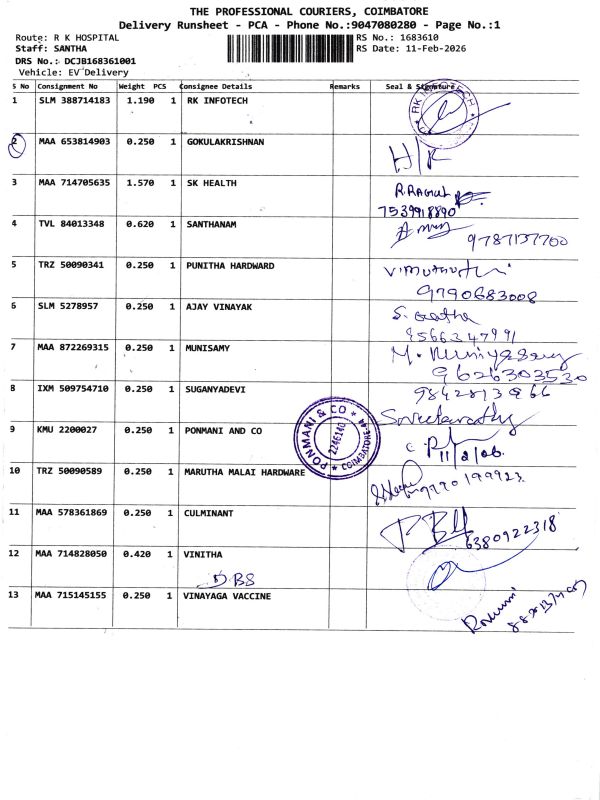 THE PROFESSIONAL COURIERS, COIMBATORE
Delivery Runsheet - PCA - Phone No.:9047080280 - Page No.:1
Route: R K HOSPITAL RS No.: 1683610
Staff: SANTHA RS Date: 11-Feb-2026
DRS No.: DCJB168361001
Vehicle: EV Delivery
S No Consignment No Weight PCS Consignee Details Remarks Seal & Signature
1 SLM 388714183 1.190 1 RK INFOTECH RK INFOTECH
2 MAA 653814903 0.250 1 GOKULAKRISHNAN H/R
3 MAA 714705635 1.570 1 SK HEALTH R.RAGUL
7539918890
4 TVL 84013348 0.620 1 SANTHANAM
9787137700
5 TRZ 50090341 0.250 1 PUNITHA HARDWARE
9790683008
6 SLM 5278957 0.250 1 AJAY VINAYAK
9566347991
7 MAA 872269315 0.250 1 MUNISAMY M. Muniyasamy
9626303530
8 IXM 509754710 0.250 1 SUGANYADEVI
9 KMU 2200027 0.250 1 PONMANI AND CO PONMANI & CO 2246140 COIMBATORE-44
11/2/26
10 TRZ 50090589 0.250 1 MARUTHA MALAI HARDWARE
11 MAA 578361869 0.250 1 CULMINANT
6380922318
12 MAA 714828050 0.420 1 VINITHA
DBS
13 MAA 715145155 0.250 1 VINAYAGA VACCINE